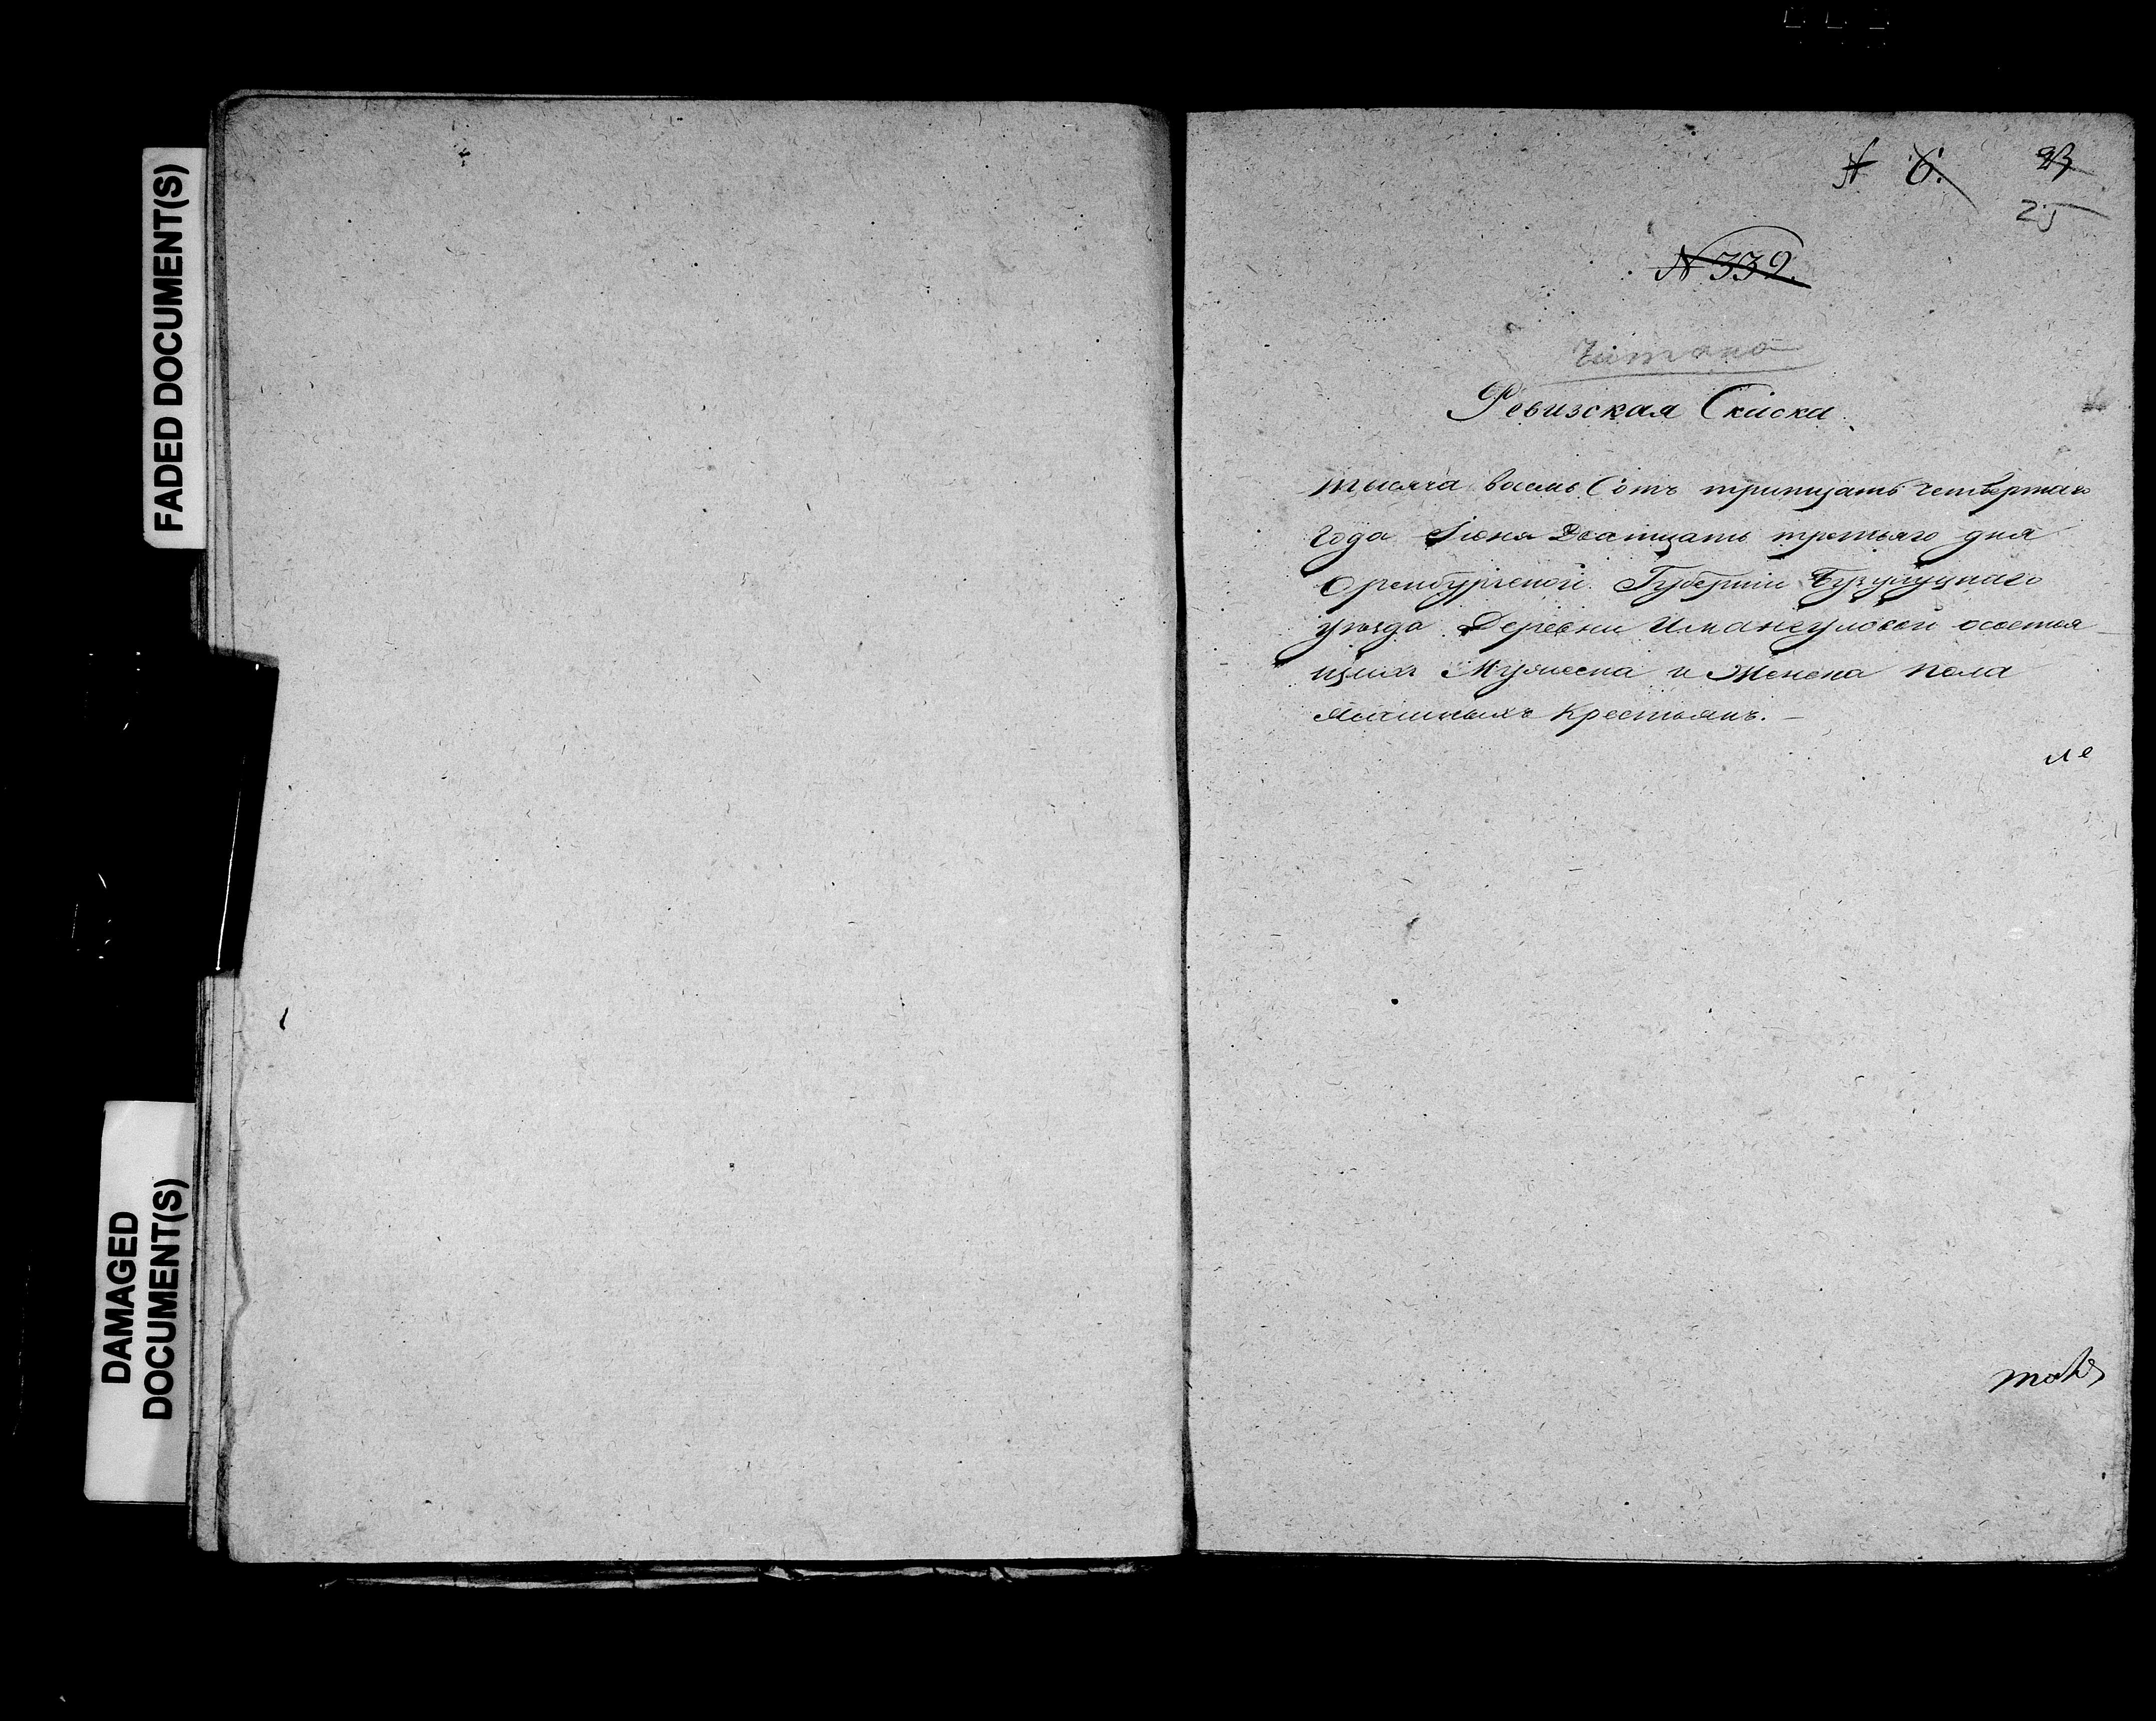 FADED DOCUMENT(S)
DAMAGED
DOCUMENT(S)
6.
25
N 339.
Читано
Ревизская Скаска
тысяча восмь Сотъ тритцать четвертаго
года Іюня Дватцать третьяго дня
Оренбургской Губерніи Бузулуцкаго
уезда Деревни Имангуловой осостоя
щихъ Мужеска и Женска пола
Ясашныхъ Крестьянъ.